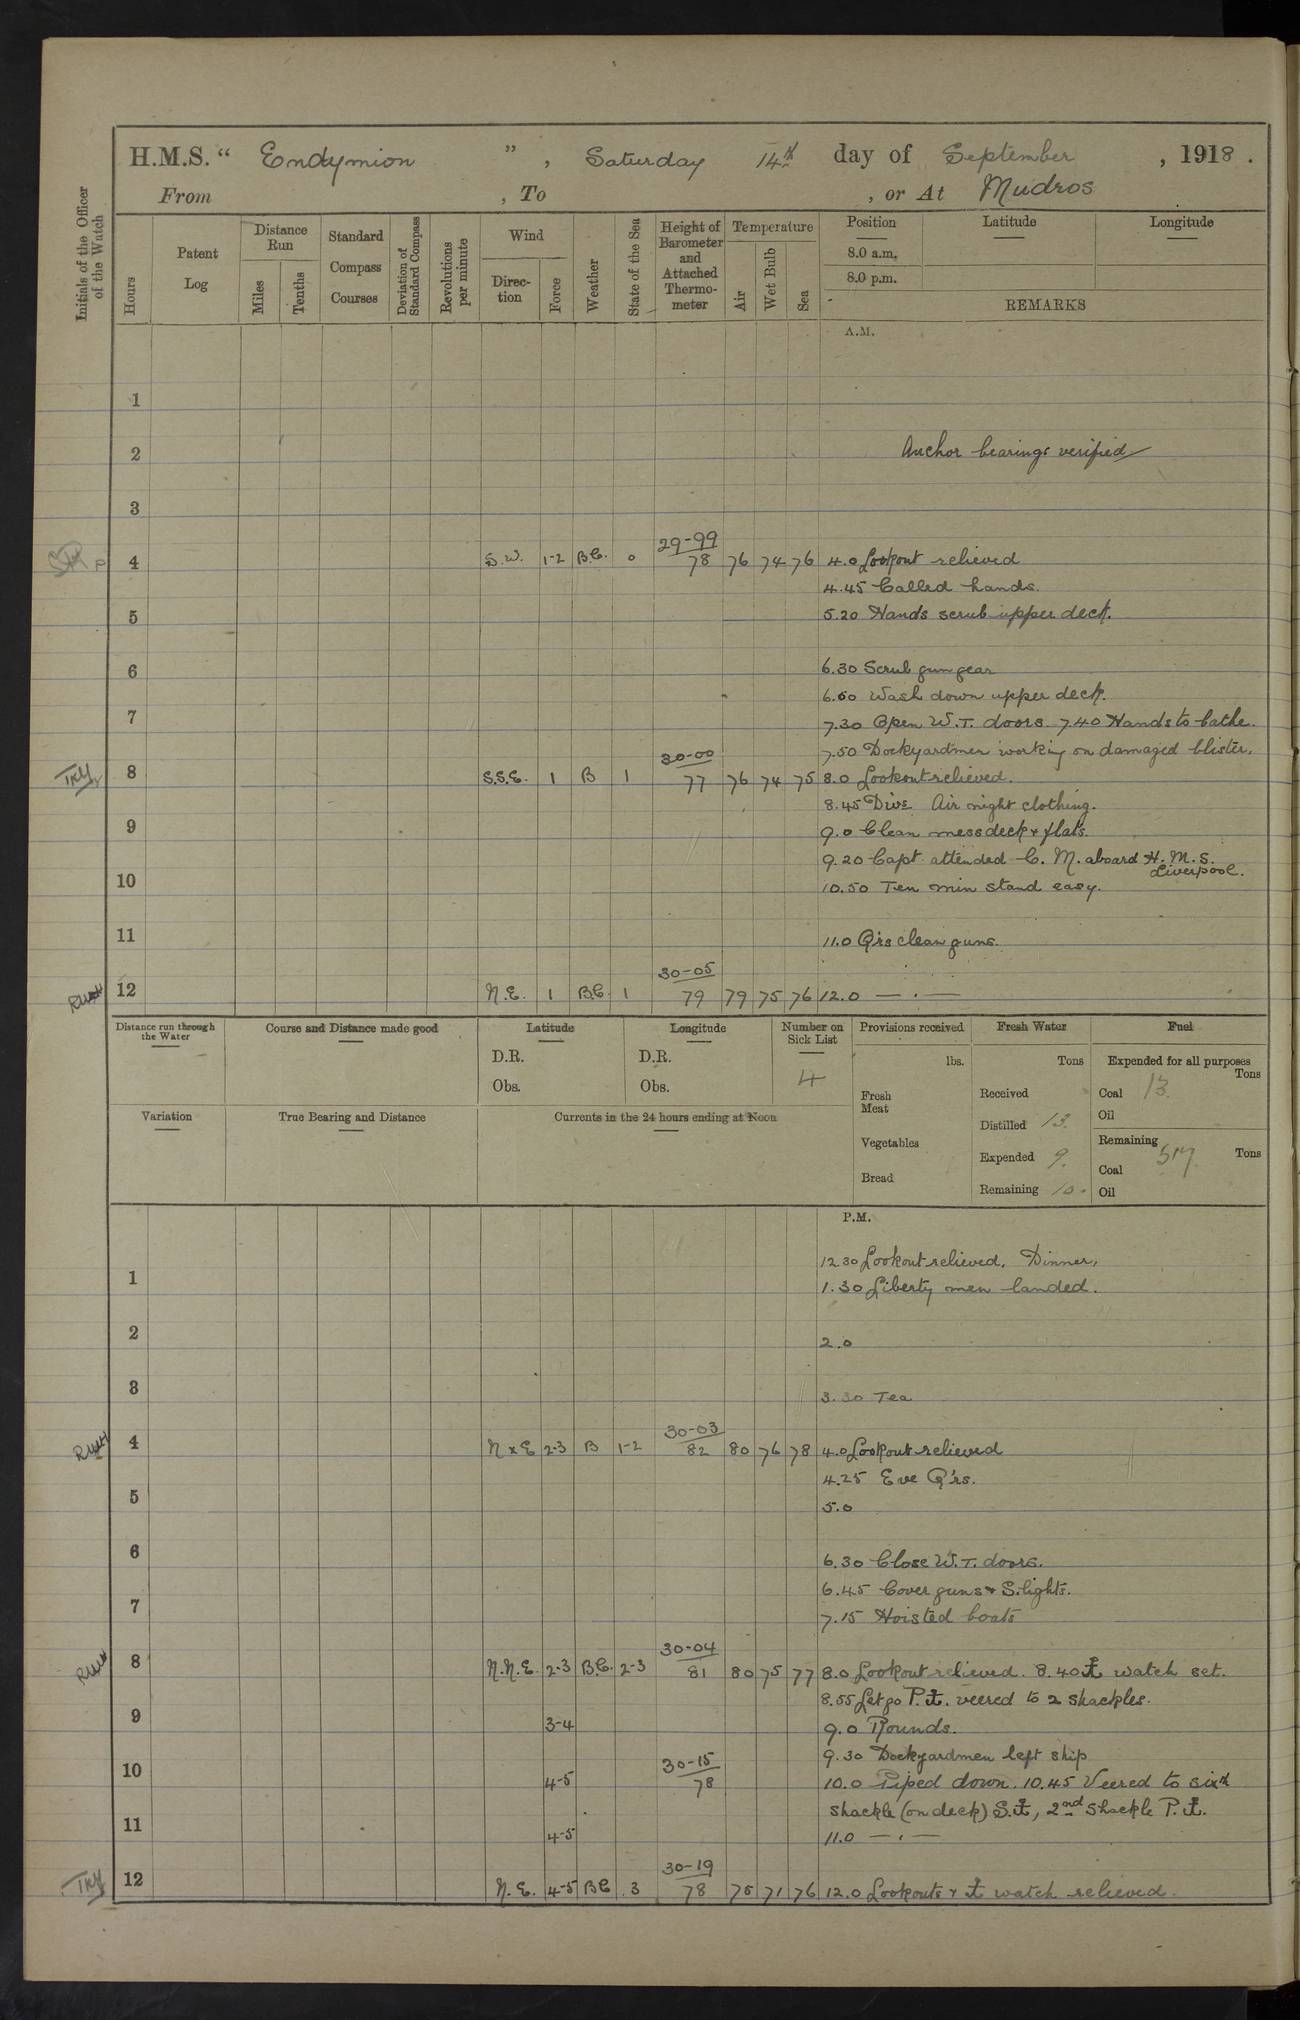 H.M.S. “ Endymion ” , Saturday 14th day of September , 1918 .
From , To , or At Mudros
Initials of the Officer of the Watch
Hours
Patent Log
Distance Run
Miles
Tenths
Standard Compass Courses
Deviation of Standard Compass
Revolutions per minute
Wind
Direc-tion
Force
Weather
State of the Sea
Height of Barometer and Attached Thermo-meter
Temperature
Air
Wet Bulb
Sea
Position Latitude Longitude
8.0 a.m.
8.0 p.m.
REMARKS
A.M.
1
2 Anchor bearings verified
3
29-99
4 S.W. 1-2 B.C. 0 78 76 74 76 4.0 Lookout relieved
4.45 Called hands.
5 5.20 Hands scrub upper deck.
6 6.30 Scrub gun gear
6.50 Wash down upper deck.
7 7.30 Open W.T. doors. 7.40 Hands to bathe.
30-00 7.50 Dockyardmen working on damaged blister.
TKY 8 S.S.E. 1 B 1 77 76 74 75 8.0 Lookout relieved.
8.45 Divs. Air night clothing.
9 9.0 Clean messdeck & flats.
9.20 Capt attended C. M. aboard H.M.S. Liverpool.
10 10.50 Ten min stand easy.
11 11.0 Q'rs clean guns.
30-05
12 N.E. 1 B.C. 1 79 79 75 76 12.0 — . —
Distance run through the Water
Course and Distance made good
Latitude
D.R.
Obs.
Longitude
D.R.
Obs.
Number on Sick List
4
Provisions received
lbs.
Fresh Meat
Vegetables
Bread
Fresh Water
Tons
Received
Distilled 13.
Expended 9.
Remaining 10.
Fuel
Expended for all purposes
Tons
Coal 13.
Oil
Remaining
Tons
Coal 517.
Oil
Variation
True Bearing and Distance
Currents in the 24 hours ending at Noon
P.M.
12.30 Lookout relieved. Dinner.
1 1.30 Liberty men landed.
2 2.0
3 3.30 Tea
30-03
4 N x E 2-3 B 1-2 82 80 76 78 4.0 Lookout relieved
4.25 Eve Q'rs.
5 5.0
6 6.30 Close W.T. doors.
6.45 Cover guns & S.lights.
7 7.15 Hoisted boats
30-04
8 N.N.E. 2-3 B.C. 2-3 81 80 75 77 8.0 Lookout relieved. 8.40 ⚓ watch set.
8.55 Let go P. ⚓. veered to 2 shackles.
9 3-4 9.0 Rounds.
30-15 9.30 Dockyardmen left ship
10 4-5 78 10.0 Piped down. 10.45 Veered to sixth
shackle (on deck) S.⚓, 2nd shackle P.⚓.
11 4-5 11.0 — . —
30-19
TKY 12 N.E. 4-5 BC 3 78 75 71 76 12.0 Lookouts & ⚓ watch relieved.